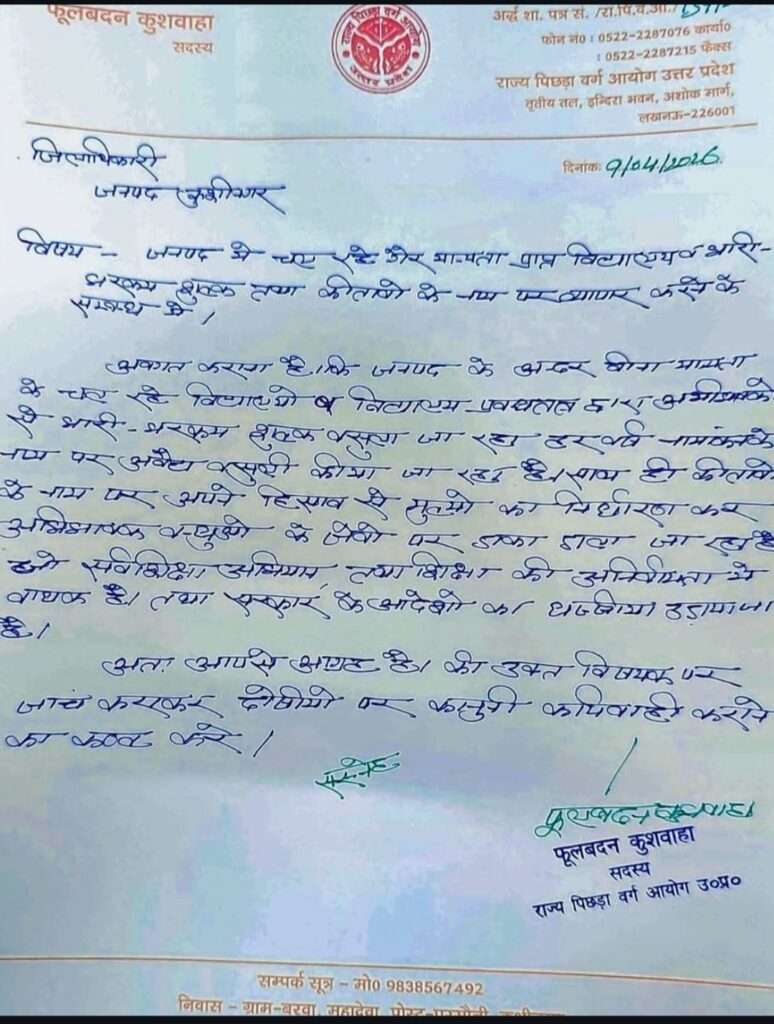 फूलबदन कुशवाहा
सदस्य
राज्य पिछड़ा वर्ग आयोग
उत्तर प्रदेश
अर्द्ध शा. पत्र सं. /रा.पि.व.आ./
फोन न0 : 0522-2287076 कार्या0
: 0522-2287215 फैक्स
राज्य पिछड़ा वर्ग आयोग उत्तर प्रदेश
तृतीय तल, इन्दिरा भवन, अशोक मार्ग,
लखनऊ-226001
जिलाधिकारी
जनपद कुशीनगर
दिनांक: 9/04/2026
विषय - जनपद मे चल रहे गैर मान्यता प्राप्त विद्यालय व भारी-
भरकम शुल्क तथा कीताबो के नाम पर व्यापार करने के
सम्बन्ध मे।
अवगत कराना है।कि जनपद के अन्दर बीना मान्यता
के चल रहे विद्यालयो व विद्यालय प्रबन्धतन्त्र द्वारा अभीभावको
से भारी-भरकम शुल्क वसुला जा रहा हर वर्ष नामांकन के
नाम पर अवैध वसुली कीया जा रहा है। साथ ही कीताबो
के नाम पर अपने हिसाब से मुल्यो का निर्धारण कर
अभिभावक बन्धुओ के जेबो पर डाका डाला जा रहा है
जो सर्वशिक्षा अभियान तथा शिक्षा की अनिर्वायता मे
बाधक है। तथा सरकार के आदेशो का धज्जीया उड़ाया जा
है।
अतः आपसे आग्रह है। की उक्त विषयक पर
जांच कराकर दोषीयो पर कानुनी कार्यवाही कराने
का कष्ट करे।
सस्नेह
फूलबदन कुशवाहा
फूलबदन कुशवाहा
सदस्य
राज्य पिछड़ा वर्ग आयोग उ०प्र०
सम्पर्क सूत्र - मो0 9838567492
निवास - ग्राम-बरवा, महादेवा, पोस्ट-